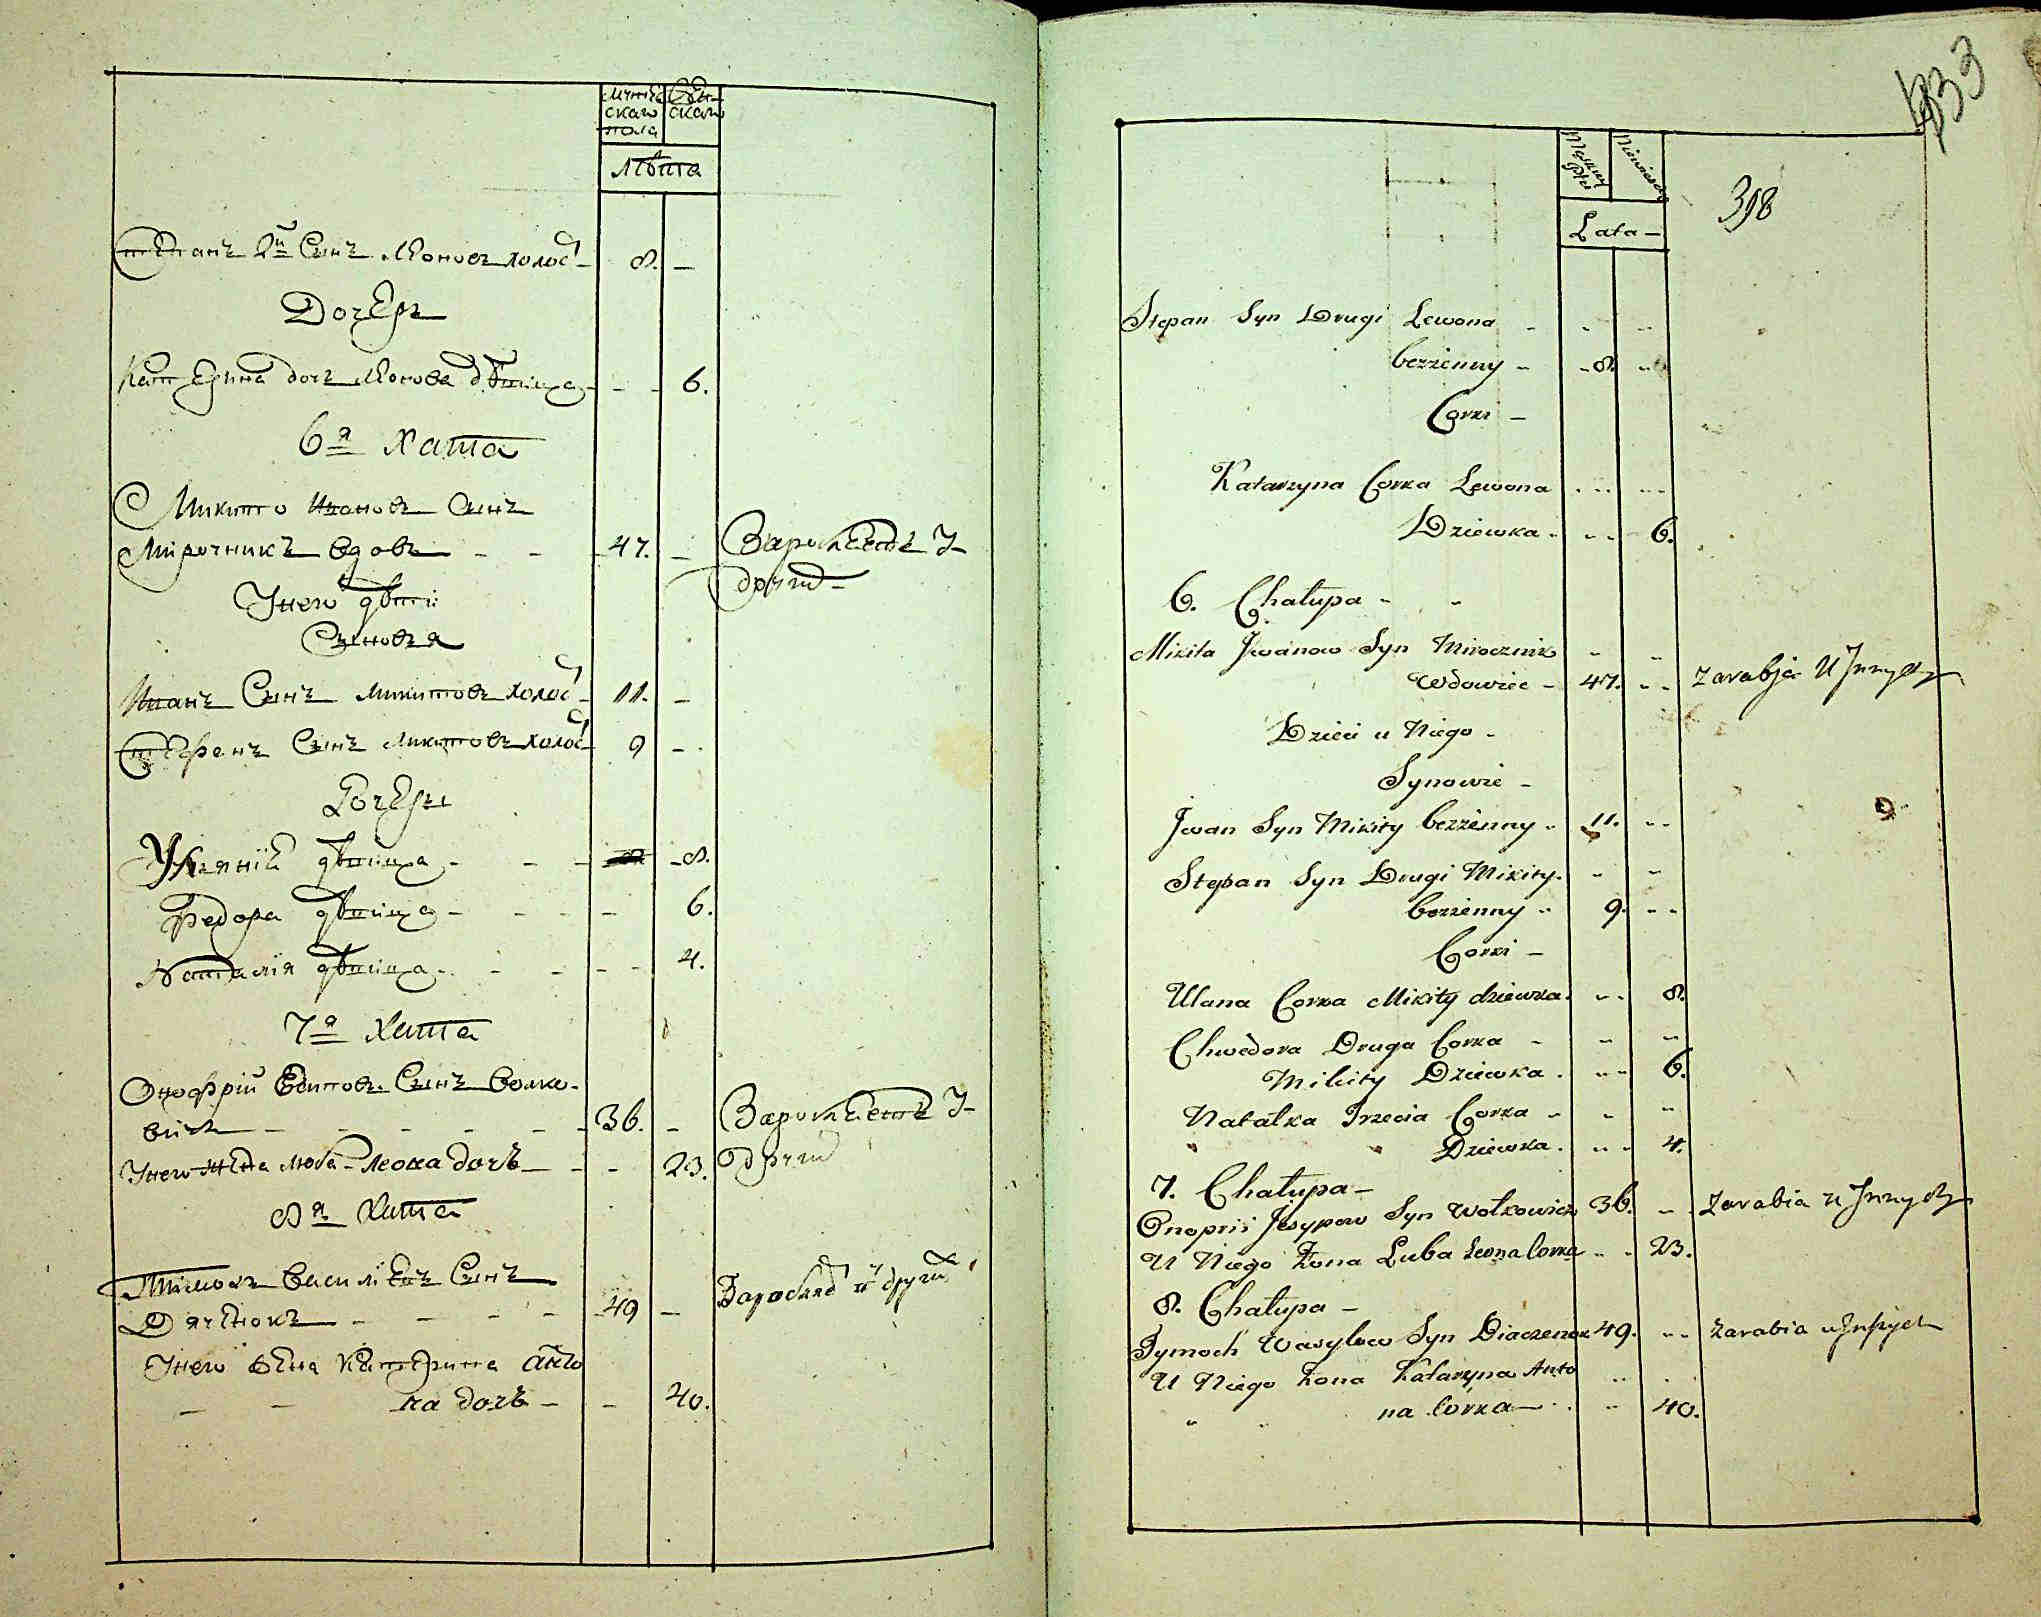 мужескаго пола
женскаго
лѣта
Степанъ 2й Сынъ Леоновъ холос 8. —
Дочери
Катерина дочь Леонова дѣвица - - 6.
6я Хата
Микито Ивановъ Сынъ
Мирочникъ вдовъ - - 47. —
У него дѣти
Сыновья
Иванъ Сынъ Микитовъ холос 11. —
Стефанъ Сынъ Микитовъ холос 9 —
Дочери
дѣвица - - - 8.
Федора дѣвица - - - 6.
Наталія дѣвица - - - 4.
7я Хата
Онофрій Сынъ Волко-
вичъ - - - 36. —
У него жена Люба Леона дочь - - 23.
8я Хата
Тимохъ Василіевъ Сынъ
Дяченокъ - - - 49 —
У него жена Катерина Анто
на дочь - - 40.
333
398
Męzkiey Płci
Niewiesciey
Lata -
Stepan Syn Drugi Lewona - - -
bezżenny - - 8. -
Corki -
Katarzyna Corka Lewona
Dziewka - - - 6.
6. Chałupa - -
Mikita Jwanow Syn Mirocznik
Wdowiec - 47. - - zarabja U Jnnych
Dzieci u Niego -
Synowie -
Jwan Syn Mikity bezżenny - 11. - -
Stepan Syn Drugi Mikity. - -
bezżenny - 9. - -
Corki -
Ulana Corka Mikity dziewka. - - 8.
Chwedora Druga Corka - - -
Mikity Dziewka. - - 6.
Natalka Trzecia Corka - - -
Dziewka. - - 4.
7. Chałupa -
Onoprii Jesypow Syn Wołkowicz 36. - - Zarabia u Jnnych
U Niego Żona Luba Leona Corka - - 23.
8. Chałupa -
Tymoch Wasylow Syn Diaczenok 49. - - Zarabia u Jnnych
U Niego Żona Katarzyna Anto
na Corka - - - 40.